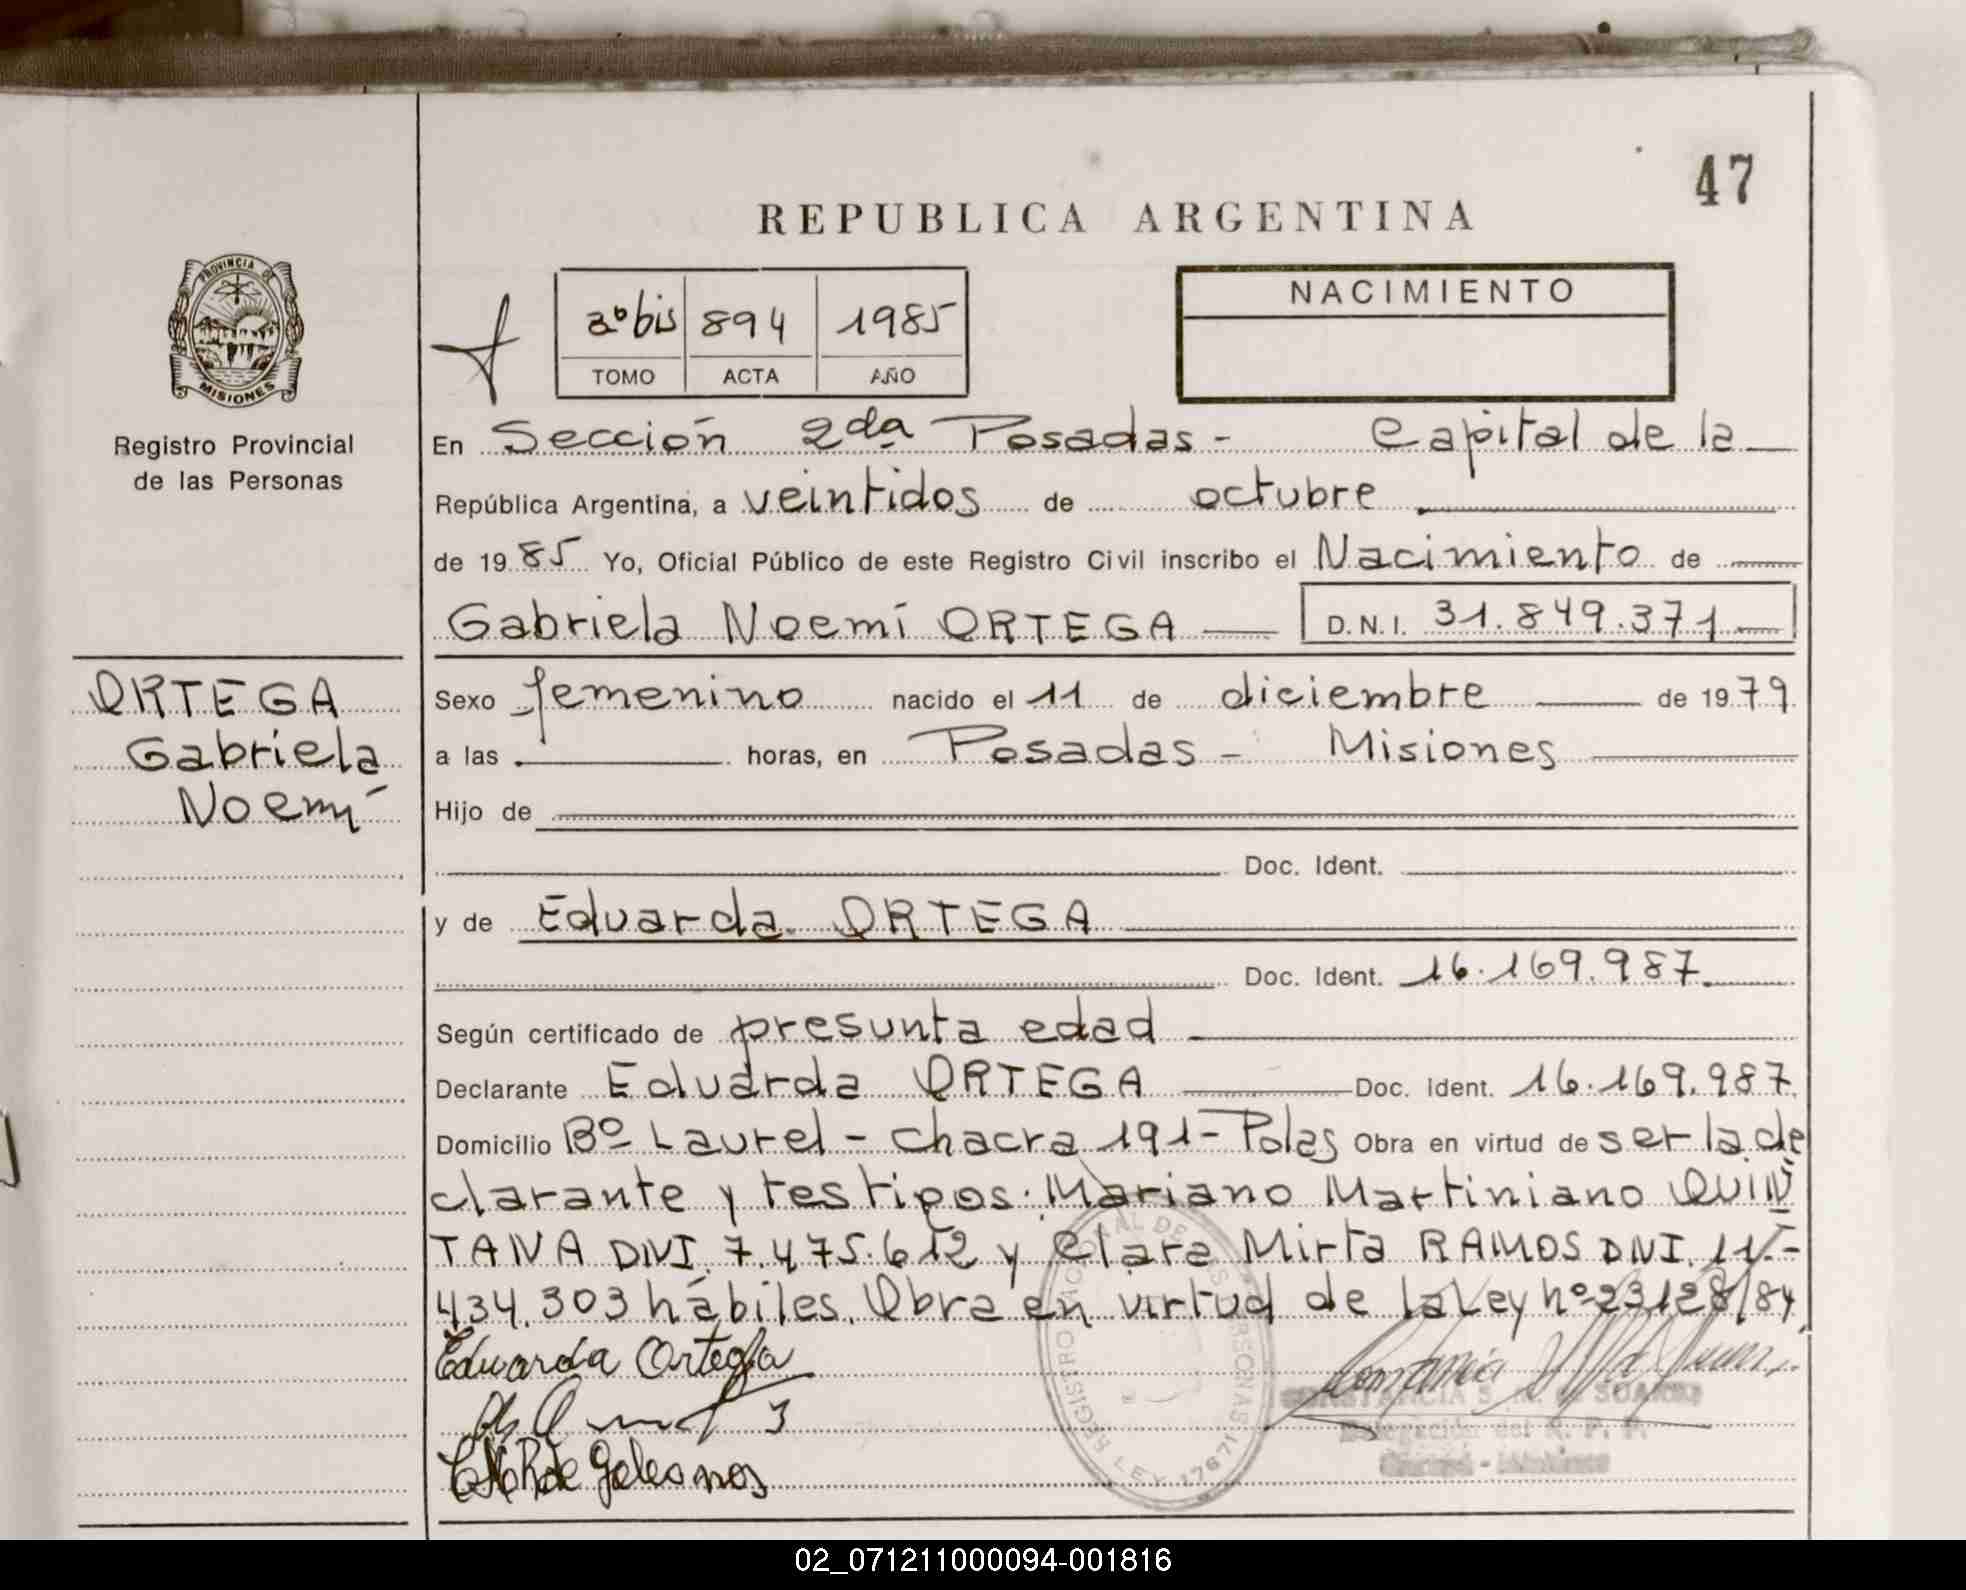 47
REPUBLICA ARGENTINA
PROVINCIA DE
MISIONES
Registro Provincial
de las Personas
3º bis 894 1985
TOMO ACTA AÑO
NACIMIENTO
En Sección 2da Posadas - Capital de la
República Argentina, a veintidos de octubre
de 1985 Yo, Oficial Público de este Registro Civil inscribo el Nacimiento de
Gabriela Noemí ORTEGA D.N.I. 31.849.371
ORTEGA
Gabriela
Noemí
Sexo femenino nacido el 11 de diciembre de 1979
a las horas, en Posadas - Misiones
Hijo de
Doc. Ident.
y de Eduarda ORTEGA
Doc. Ident. 16.169.987
Según certificado de presunta edad
Declarante Eduarda ORTEGA Doc. Ident. 16.169.987
Domicilio Bº Laurel - chacra 191 - Pdas Obra en virtud de ser la de
clarante y testigos: Mariano Martiniano QUIN
TANA DNI. 7.475.612 y Clara Mirta RAMOS DNI. 11.-
434.303 hábiles. Obra en virtud de la Ley nº 23128/84
Eduarda Ortega
REGISTRO NACIONAL DE LAS PERSONAS
LEY 17671
02_071211000094-001816